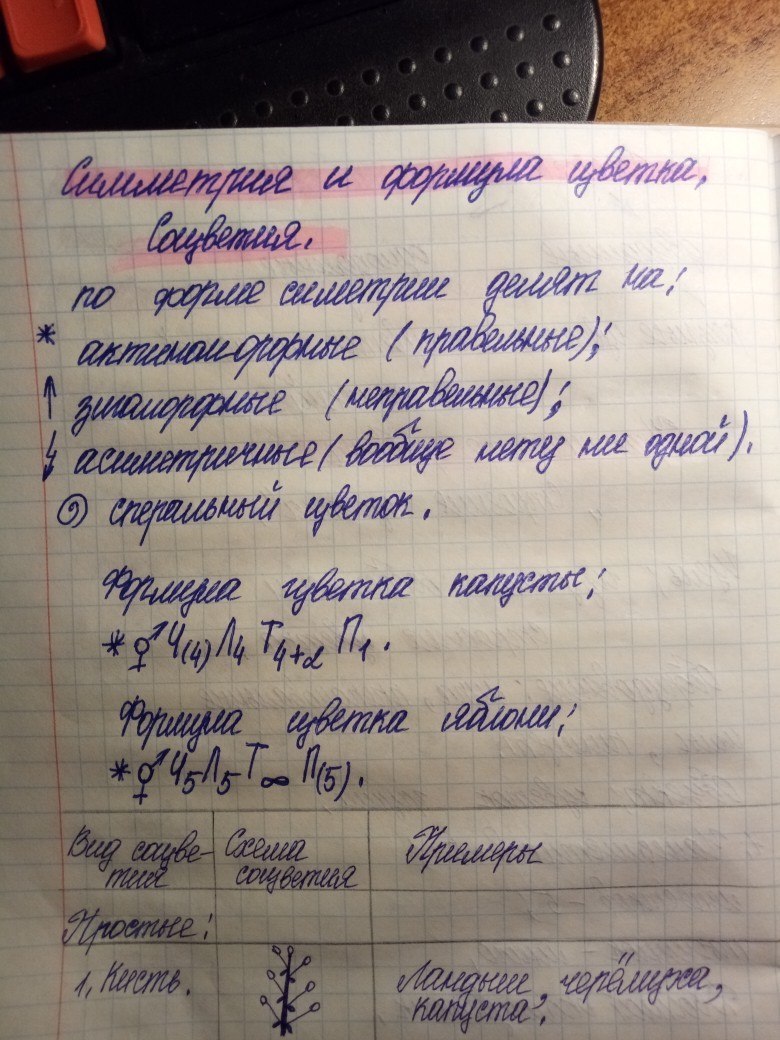 Симметрия и формула цветка.
Соцветия.
по форме симетрии делят на:
* актиноморфные (правельные);
↑ зигоморфные (неправельные);
↯ асиметричные (вообще нету ни одной).
спиральный цветок.
Формула цветка капусты:
* ⚥ Ч(4) Л4 Т4+2 П1.
Формула цветка яблони:
* ⚥ Ч5 Л5 Т∞ П(5).
Вид соцве- Схема Примеры
тия соцветия
Простые:
1. Кисть. Ландыш, черёмуха,
капуста.